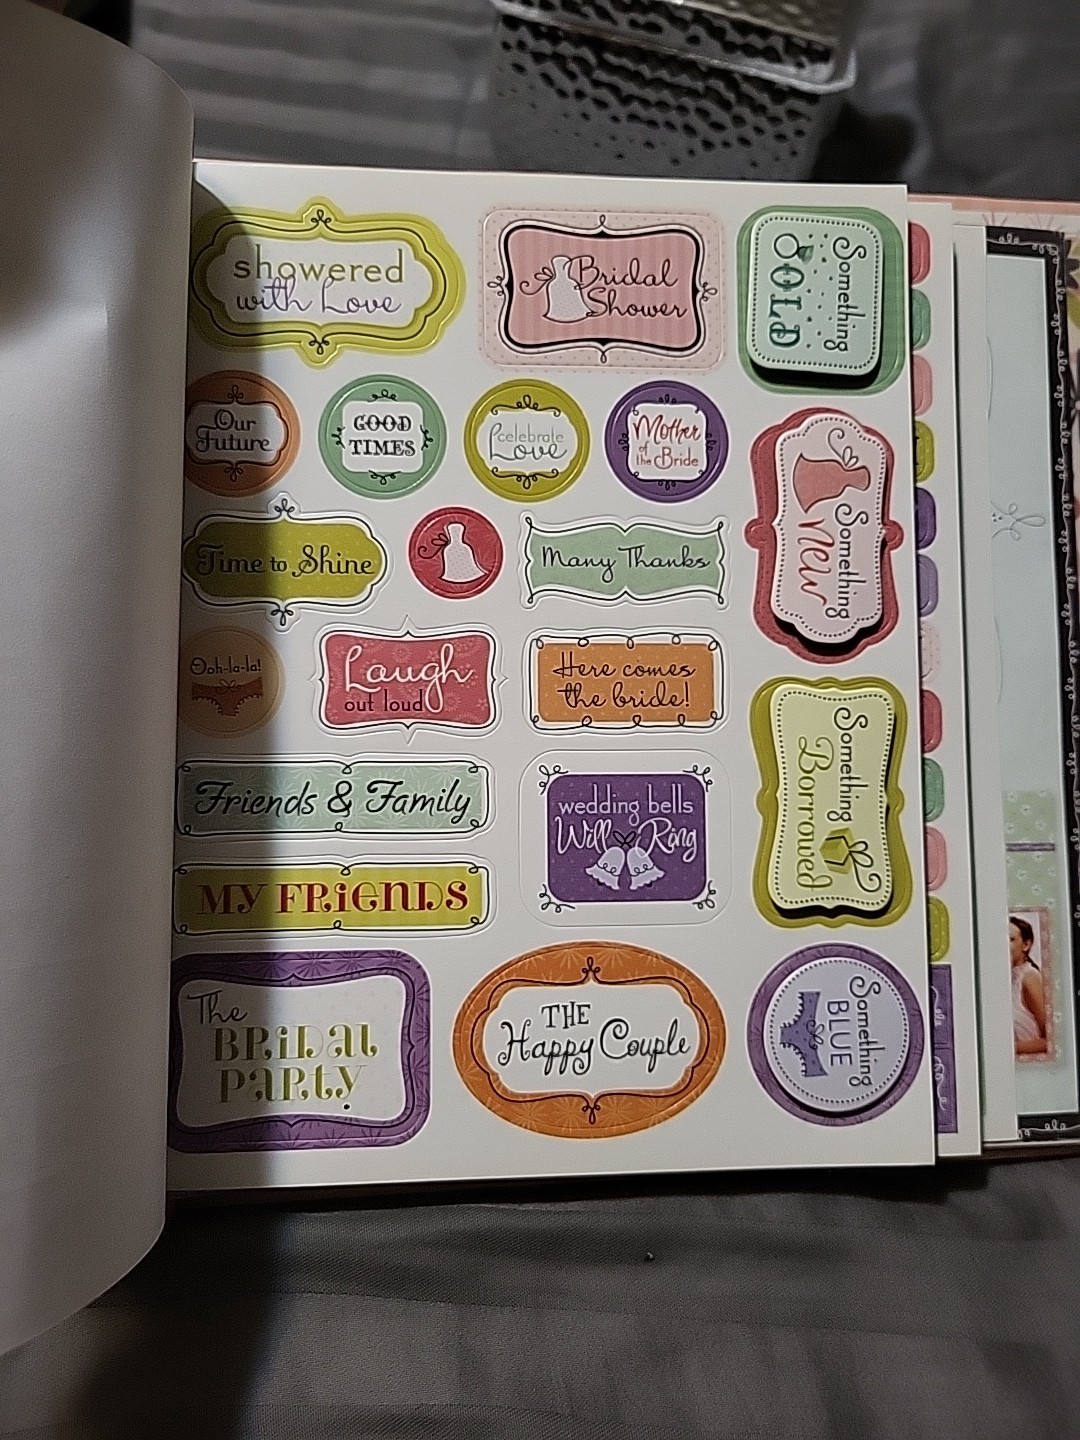 showered
with Love
Bridal
Shower
Something
OLD
Our
Future
GOOD
TIMES
celebrate
Love
Mother
of the Bride
Something
New
Time to Shine
Many Thanks
Ooh-la-la!
Laugh
out loud
Here comes
the bride!
Something
Borrowed
Friends & Family
wedding bells
Will Ring
MY FRiENDS
The
BRiDAL
PARTY
THE
Happy Couple
Something
BLUE